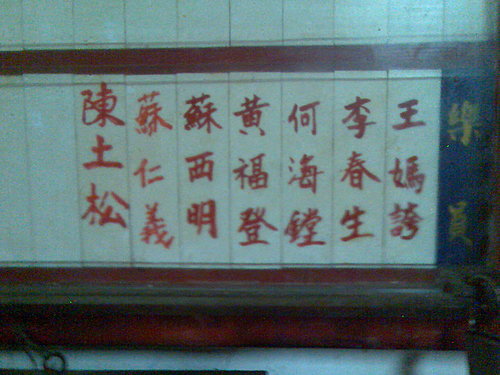 樂員
王媽誇
李春生
何海鏜
黃福登
蘇西明
蘇仁義
陳土松